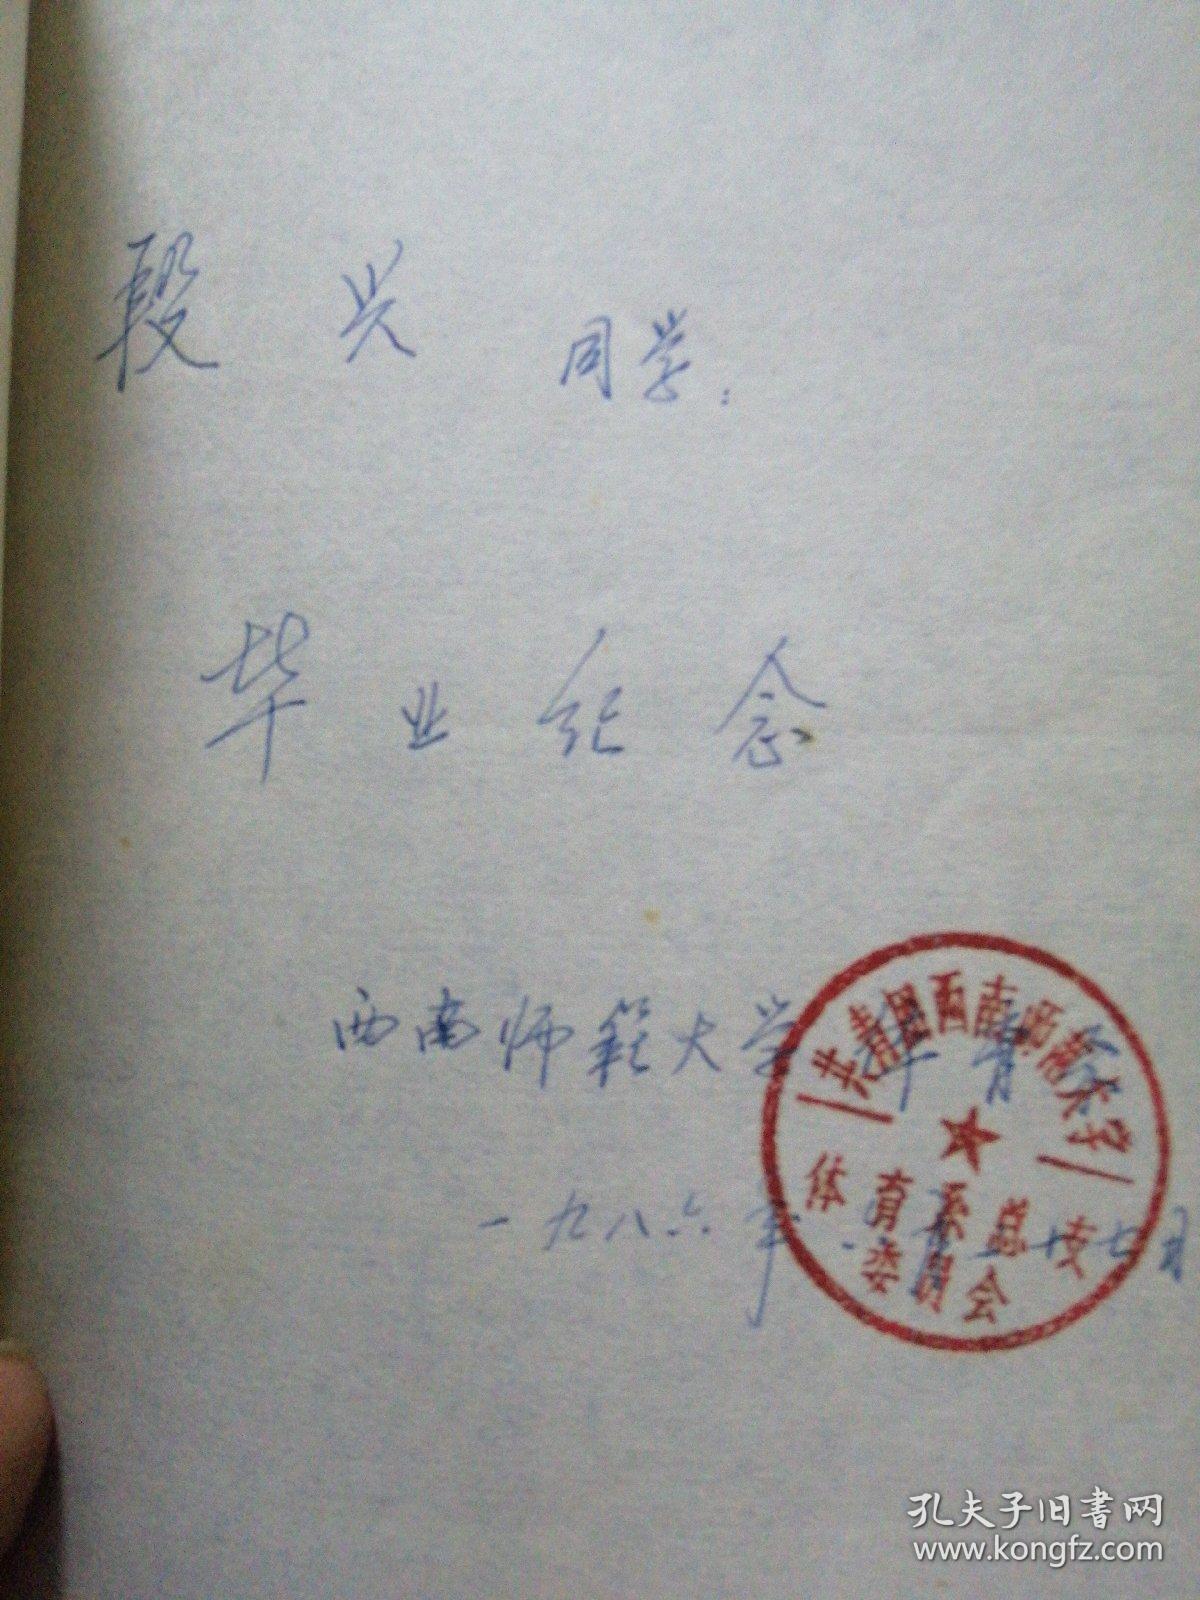 段兴 同学:
毕业纪念
西南师范大学体育系
一九八六年
七月
共青团西南师范大学
体育系总支
委员会
孔夫子旧书网
www.kongfz.com